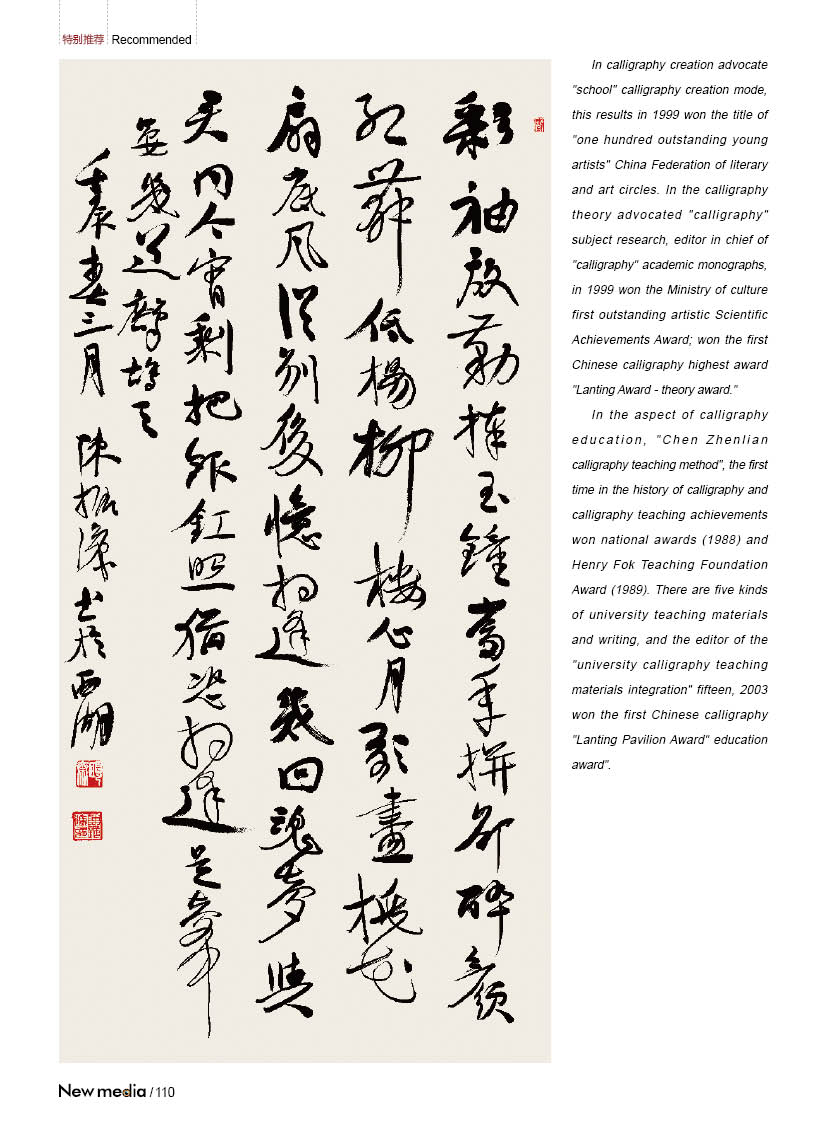 特别推荐 Recommended
彩袖殷勤捧玉鍾當年拚却醉顏
紅舞低楊柳樓心月歌盡桃花
扇底風從別後憶相逢幾回魂夢與
君同今宵剩把銀釭照猶恐相逢是夢中
晏幾道鷓鴣天
壬辰春三月 陳振濂書於西湖
In calligraphy creation advocate
"school" calligraphy creation mode,
this results in 1999 won the title of
"one hundred outstanding young
artists" China Federation of literary
and art circles. In the calligraphy
theory advocated "calligraphy"
subject research, editor in chief of
"calligraphy" academic monographs,
in 1999 won the Ministry of culture
first outstanding artistic Scientific
Achievements Award; won the first
Chinese calligraphy highest award
"Lanting Award - theory award."
In the aspect of calligraphy
education, "Chen Zhenlian
calligraphy teaching method", the first
time in the history of calligraphy and
calligraphy teaching achievements
won national awards (1988) and
Henry Fok Teaching Foundation
Award (1989). There are five kinds
of university teaching materials
and writing, and the editor of the
"university calligraphy teaching
materials integration" fifteen, 2003
won the first Chinese calligraphy
"Lanting Pavilion Award" education
award".
New media / 110